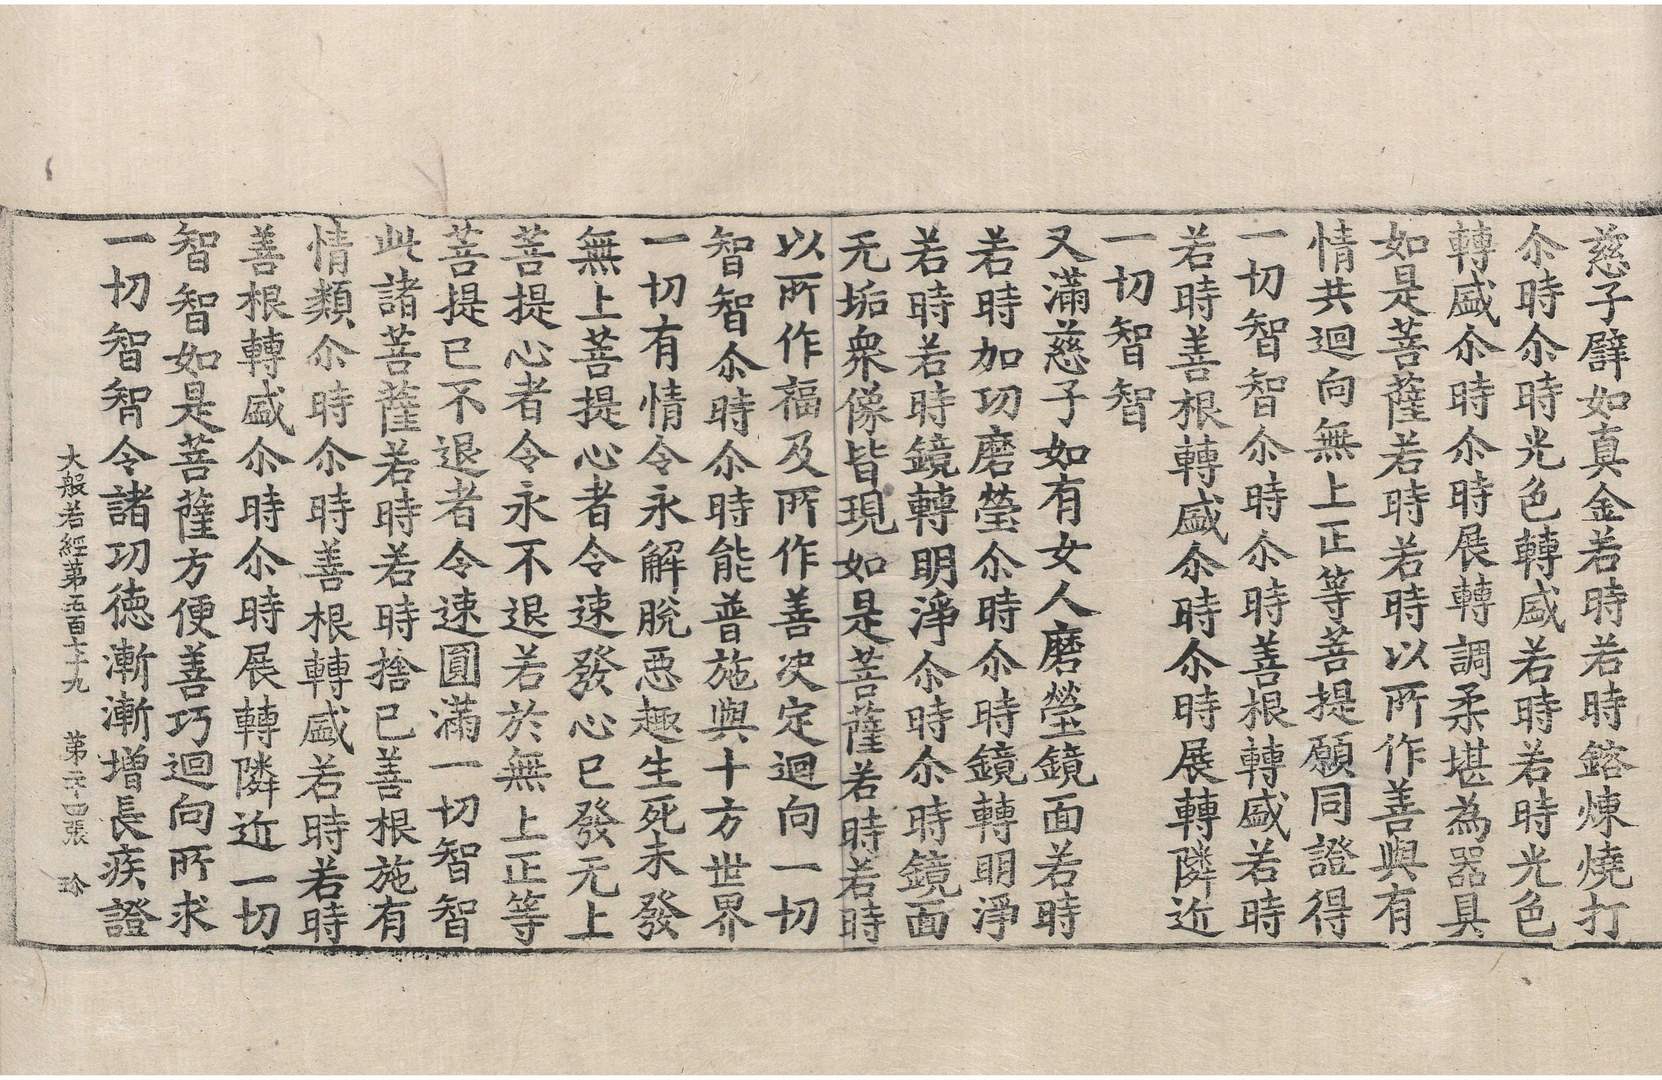 慈子譬如真金若時若時鎔煉燒打
尒時尒時光色轉盛若時若時光色
轉盛尒時尒時展轉調柔堪為器具
如是菩薩若時若時以所作善與有
情共迴向無上正等菩提願同證得
一切智智尒時尒時善根轉盛若時
若時善根轉盛尒時尒時展轉隣近
一切智智
又滿慈子如有女人磨瑩鏡面若時
若時加功磨瑩尒時尒時鏡轉明淨
若時若時鏡轉明淨尒時尒時鏡面
无垢衆像皆現如是菩薩若時若時
以所作福及所作善决定迴向一切
智智尒時尒時能普施與十方世界
一切有情令永解脫惡趣生死未發
無上菩提心者令速發心已發无上
菩提心者令永不退若於無上正等
菩提已不退者令速圓滿一切智智
此諸菩薩若時若時捨已善根施有
情類尒時尒時善根轉盛若時若時
善根轉盛尒時尒時展轉隣近一切
智智如是菩薩方便善巧迴向所求
一切智智令諸功德漸漸增長疾證
大般若經第五百七十九 第二十四張 珎